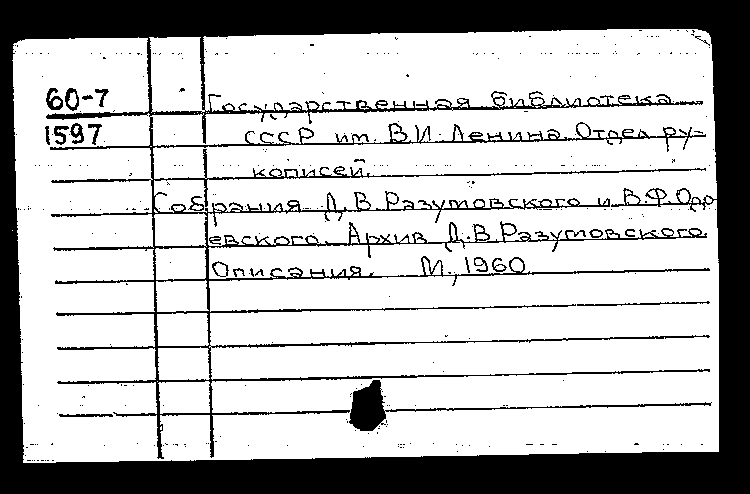 60-7
1597
Государственная библиотека
СССР им. В.И. Ленина. Отдел ру-
кописей.
Собрания Д.В. Разумовского и В.Ф. Одо
евского. Архив Д.В. Разумовского.
Описания. М., 1960